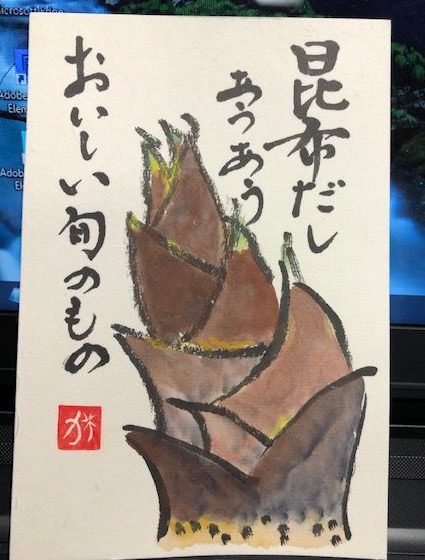 昆布だし
あうあう
おいしい旬のもの
Adobe
Elem
Adobe